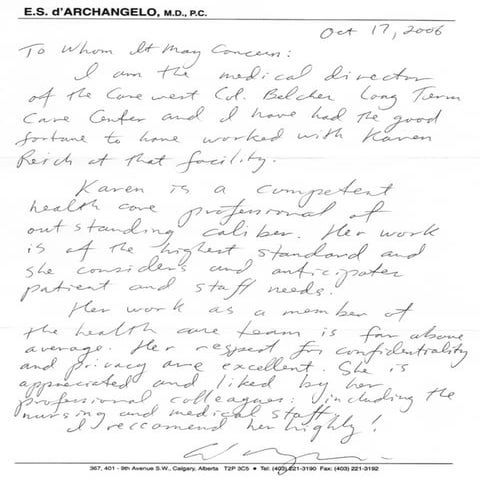 E.S. d'ARCHANGELO, M.D., P.C.
Oct 17, 2006
To Whom It May Concern:
I am the medical director
of the Carewest Col. Belcher Long Term
Care Center and I have had the good
fortune to have worked with Karen
Reich at that facility.
Karen is a competent
health care professional of
outstanding caliber. Her work
is of the highest standard and
she considers and anticipates
patient and staff needs.
Her work as a member of
the health care team is far above
average. Her respect for confidentiality
and privacy are excellent. She is
appreciated and liked by her
professional colleagues: including the
nursing and medical staff.
I reccomend her highly!
367, 401 - 9th Avenue S.W., Calgary, Alberta T2P 3C5 • Tel: (403) 221-3190 Fax: (403) 221-3192